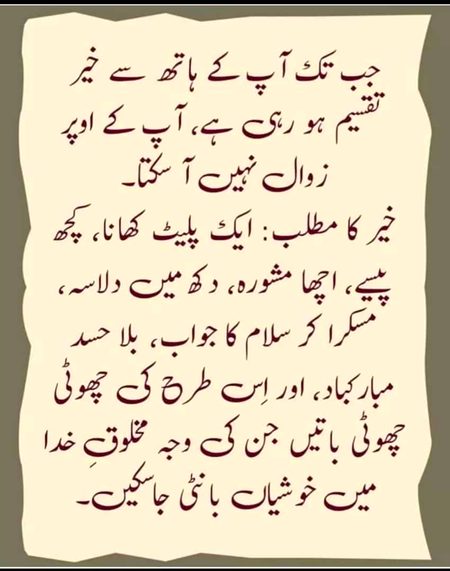 جب تک آپ کے ہاتھ سے خیر
تقسیم ہو رہی ہے، آپ کے اوپر
زوال نہیں آ سکتا۔
خیر کا مطلب: ایک پلیٹ کھانا، کچھ
پیسے، اچھا مشورہ، دکھ میں دلاسہ،
مسکرا کر سلام کا جواب، بلا حسد
مبارکباد، اور اِس طرح کی چھوٹی
چھوٹی باتیں جن کی وجہ مخلوقِ خدا
میں خوشیاں بانٹی جاسکیں۔